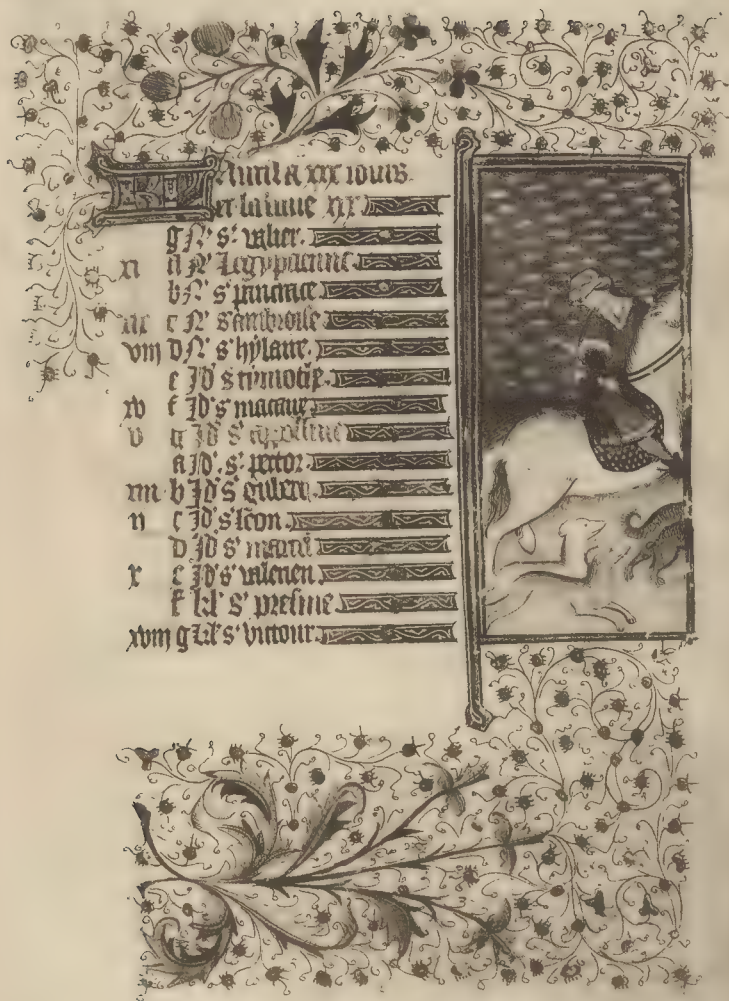 Auril a xxx iours.
et la lune
g N' s' valier.
xi a N' Legypacienne
b N' s pancrace
c N' s ambroise
viii d N' s' hylaire.
e Id s timothe
xv f Id' s macaire
v g Id' s' appoline
a Id'. s'
xiii b Id' s'
ii c Id' s' leon.
d Id s' marcel
x e Id' s' valerien
f kl' s' presme
xviii g kl' s' victour